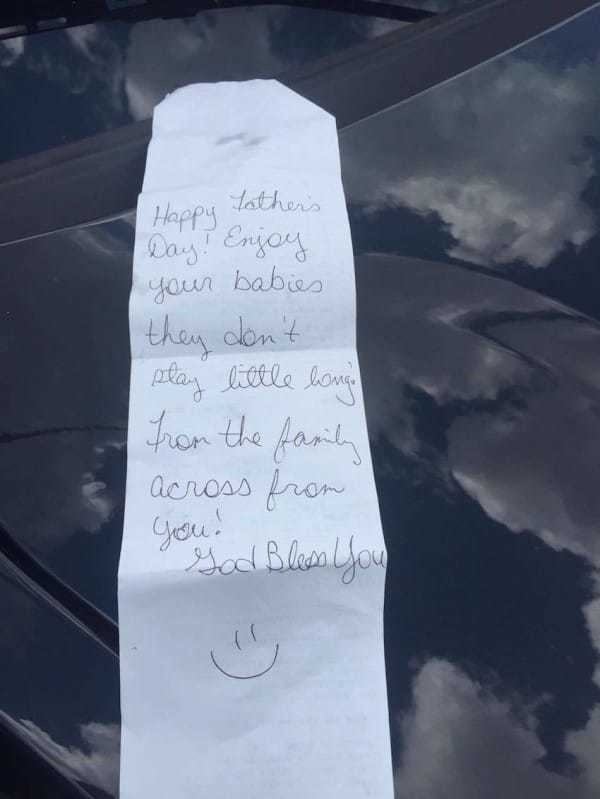 Happy Father's
Day! Enjoy
your babies
they don't
stay little long.
From the family
across from
you!
God Bless You